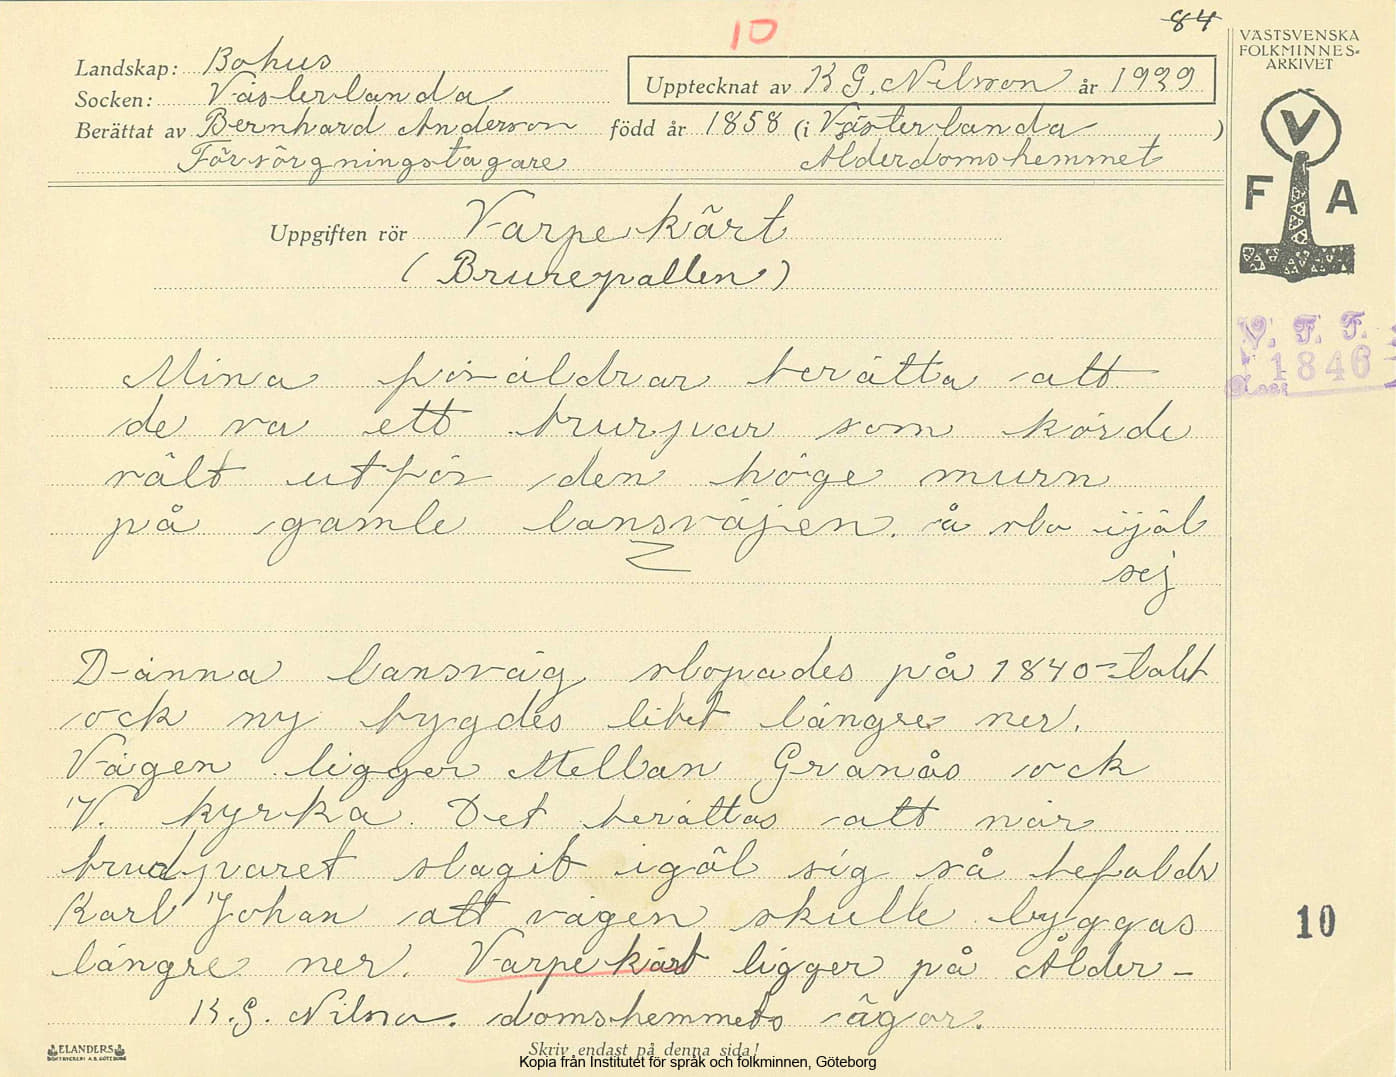 84
10
VÄSTSVENSKA
FOLKMINNES-
ARKIVET
V
F A
Landskap: Bohus
Socken: Västerlanda
Upptecknat av K G. Nilsson år 1929
Berättat av Bernhard Anderson född år 1858 (i Västerlanda )
Försörgningstagare Alderdomshemmet
Uppgiften rör Varpe kärt
(Brurepallen)
V. F. F.
1846
Mina föräldrar berätta att
de va ett brurpar som körde
rält utför den höge murn
på gamle lansväjen. å slo ijäl
sej
Danna lansväg slopades på 1840-talet
ock ny bygdes litet längre ner.
Vägen ligger Mellan Granås ock
V. kyrka. Det berättas att när
brudparet slagit igäl sig så befalde
Karl Johan att vägen skulle byggas
längre ner. Varpe kärt ligger på Ålder-
K.G. Nilson. domshemmets ägor.
10
ELANDERS
BOKTRYCKERI A.B. GÖTEBORG
Skriv endast på denna sida!
Kopia från Institutet för språk och folkminnen, Göteborg